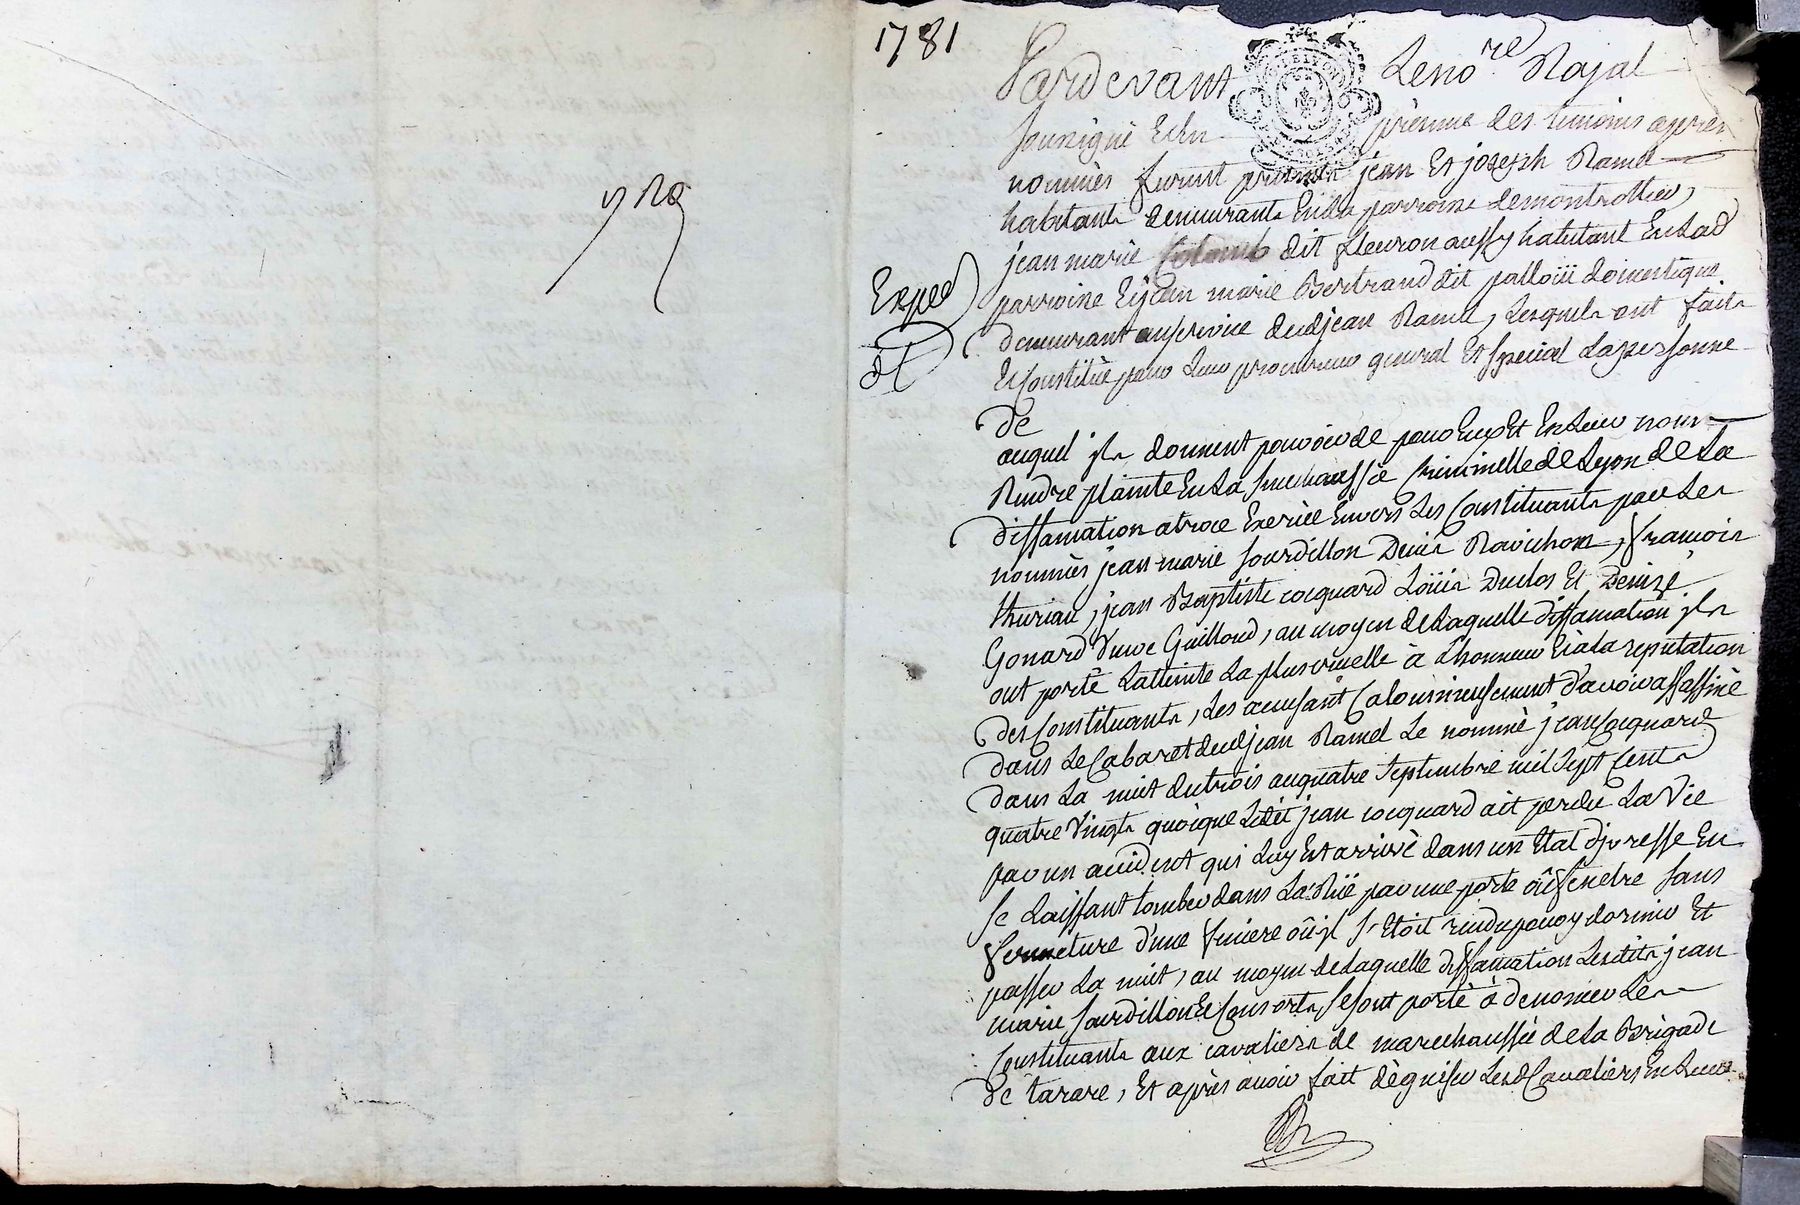 1781
Pardevant Le no.re Royal
soussigné Et En présence des temoins après
nommés furent présents jean Et joseph Ramel
habitants demeurants En La parroisse de montrottier,
jean marie dit fleuron aussy habitant En Lad
parroisse Et jean marie Bertrand dit domestique
demeurant au service dud jean Ramel, Lesquels ont fait
Et Constitué pour Leur procureur general Et special La personne
Exped
de
auquel ils donnent pouvoir de pour Eux Et En Leur nom
Rendre plainte En La senechaussée Criminelle de Lyon de La
diffamation atroce Exercée Envers Les Constituants par Les
nommés jean marie Sourdillon Denis Ravichon, françois
thurian, jean Baptiste cocquard Loüis Duclos Et Denize
Gonard Veuve Guilloud, au moyen de Laquelle diffamation ils
ont porté Latteinte La plus cruelle à Lhonneur Et à La reputation
des Constituants, Les accusant Calomnieusement d'avoir assassiné
dans Le Cabaret dud jean Ramel Le nommé jean Cocquard
dans La nuit du trois au quatre septembre mil sept Cents
quatre vingts quoique Ledit jean cocquard ait perdu La Vie
par un accident qui Luy Est arrivé dans un Etat djvresse En
se Laissant tomber dans La Rüe par une porte où fenetre sans
fermeture d'une feniere où jl s'Etoit rendu pour y dormir Et
passer La nuit, au moyen de Laquelle diffamation Lesdits jean
marie Sourdillon Et Consorts, se sont porté à denoncer Les
Constituants aux cavaliers de marechaussée de La Brigade
de tarare, Et après avoir fait déguiser Lesd Cavaliers En Leur